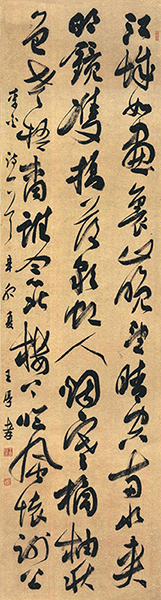 江城如畫裏山晚望晴空兩水夾
明鏡雙橋落彩虹人烟寒橘柚秋
色老梧桐誰念北樓上臨風懷謝公
李白詩一首辛卯夏王